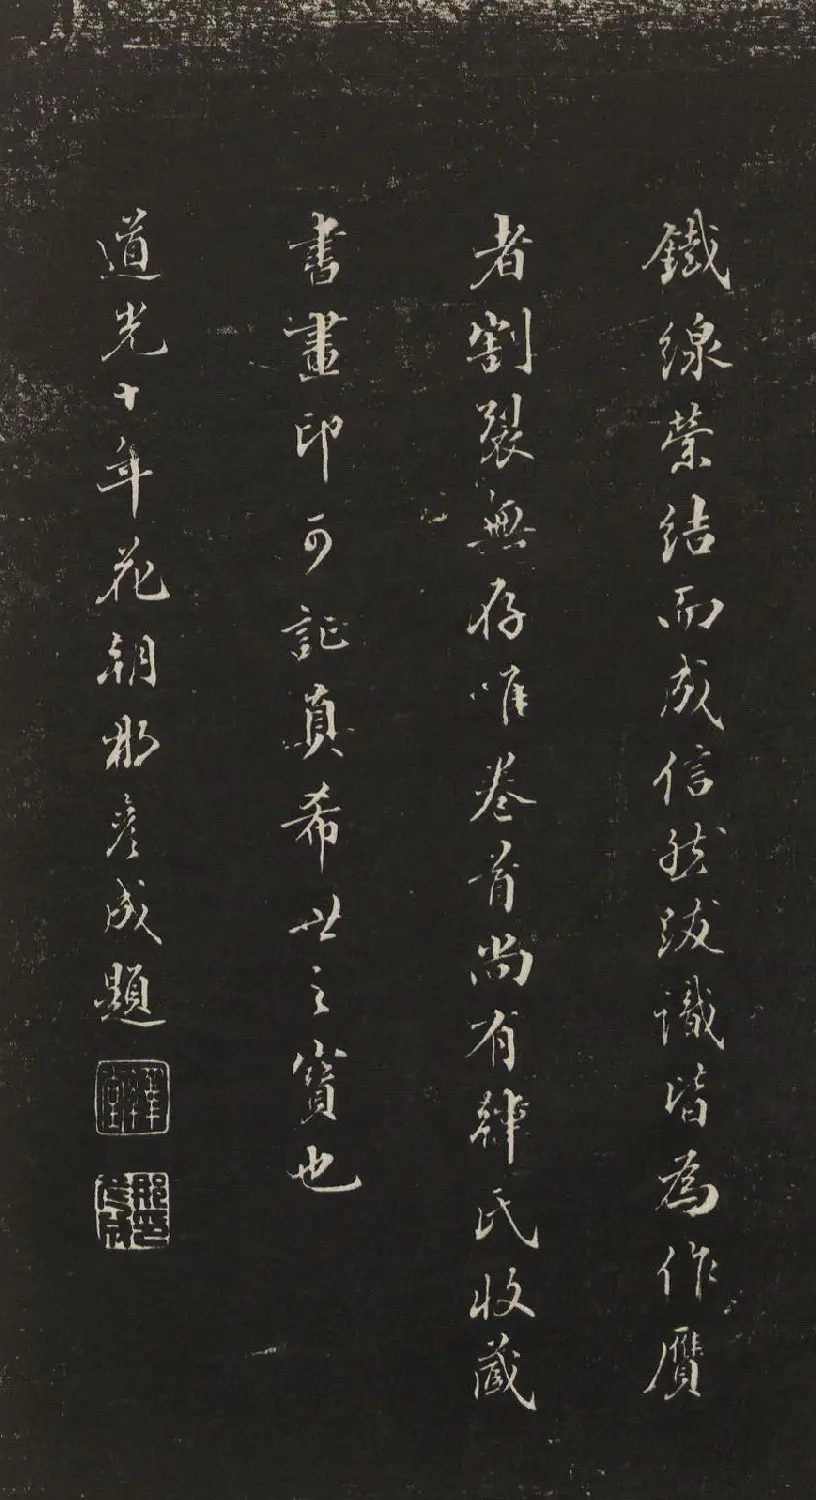 鐵線縈結而成信然跋識皆為作贗
者割裂無存唯卷首尚有韓氏收藏
書畫印可証真希世之寶也
道光十年花朝那彦成題
繹堂
那彦成印